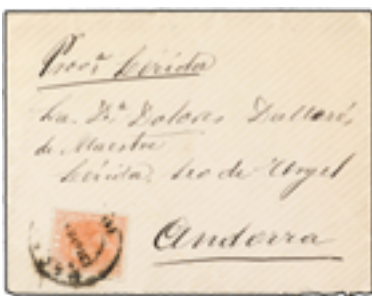 Prov.ª Lérida
Sra. D.ª Dolores
de Maestre
Lérida. Seo de Urgel
Andorra